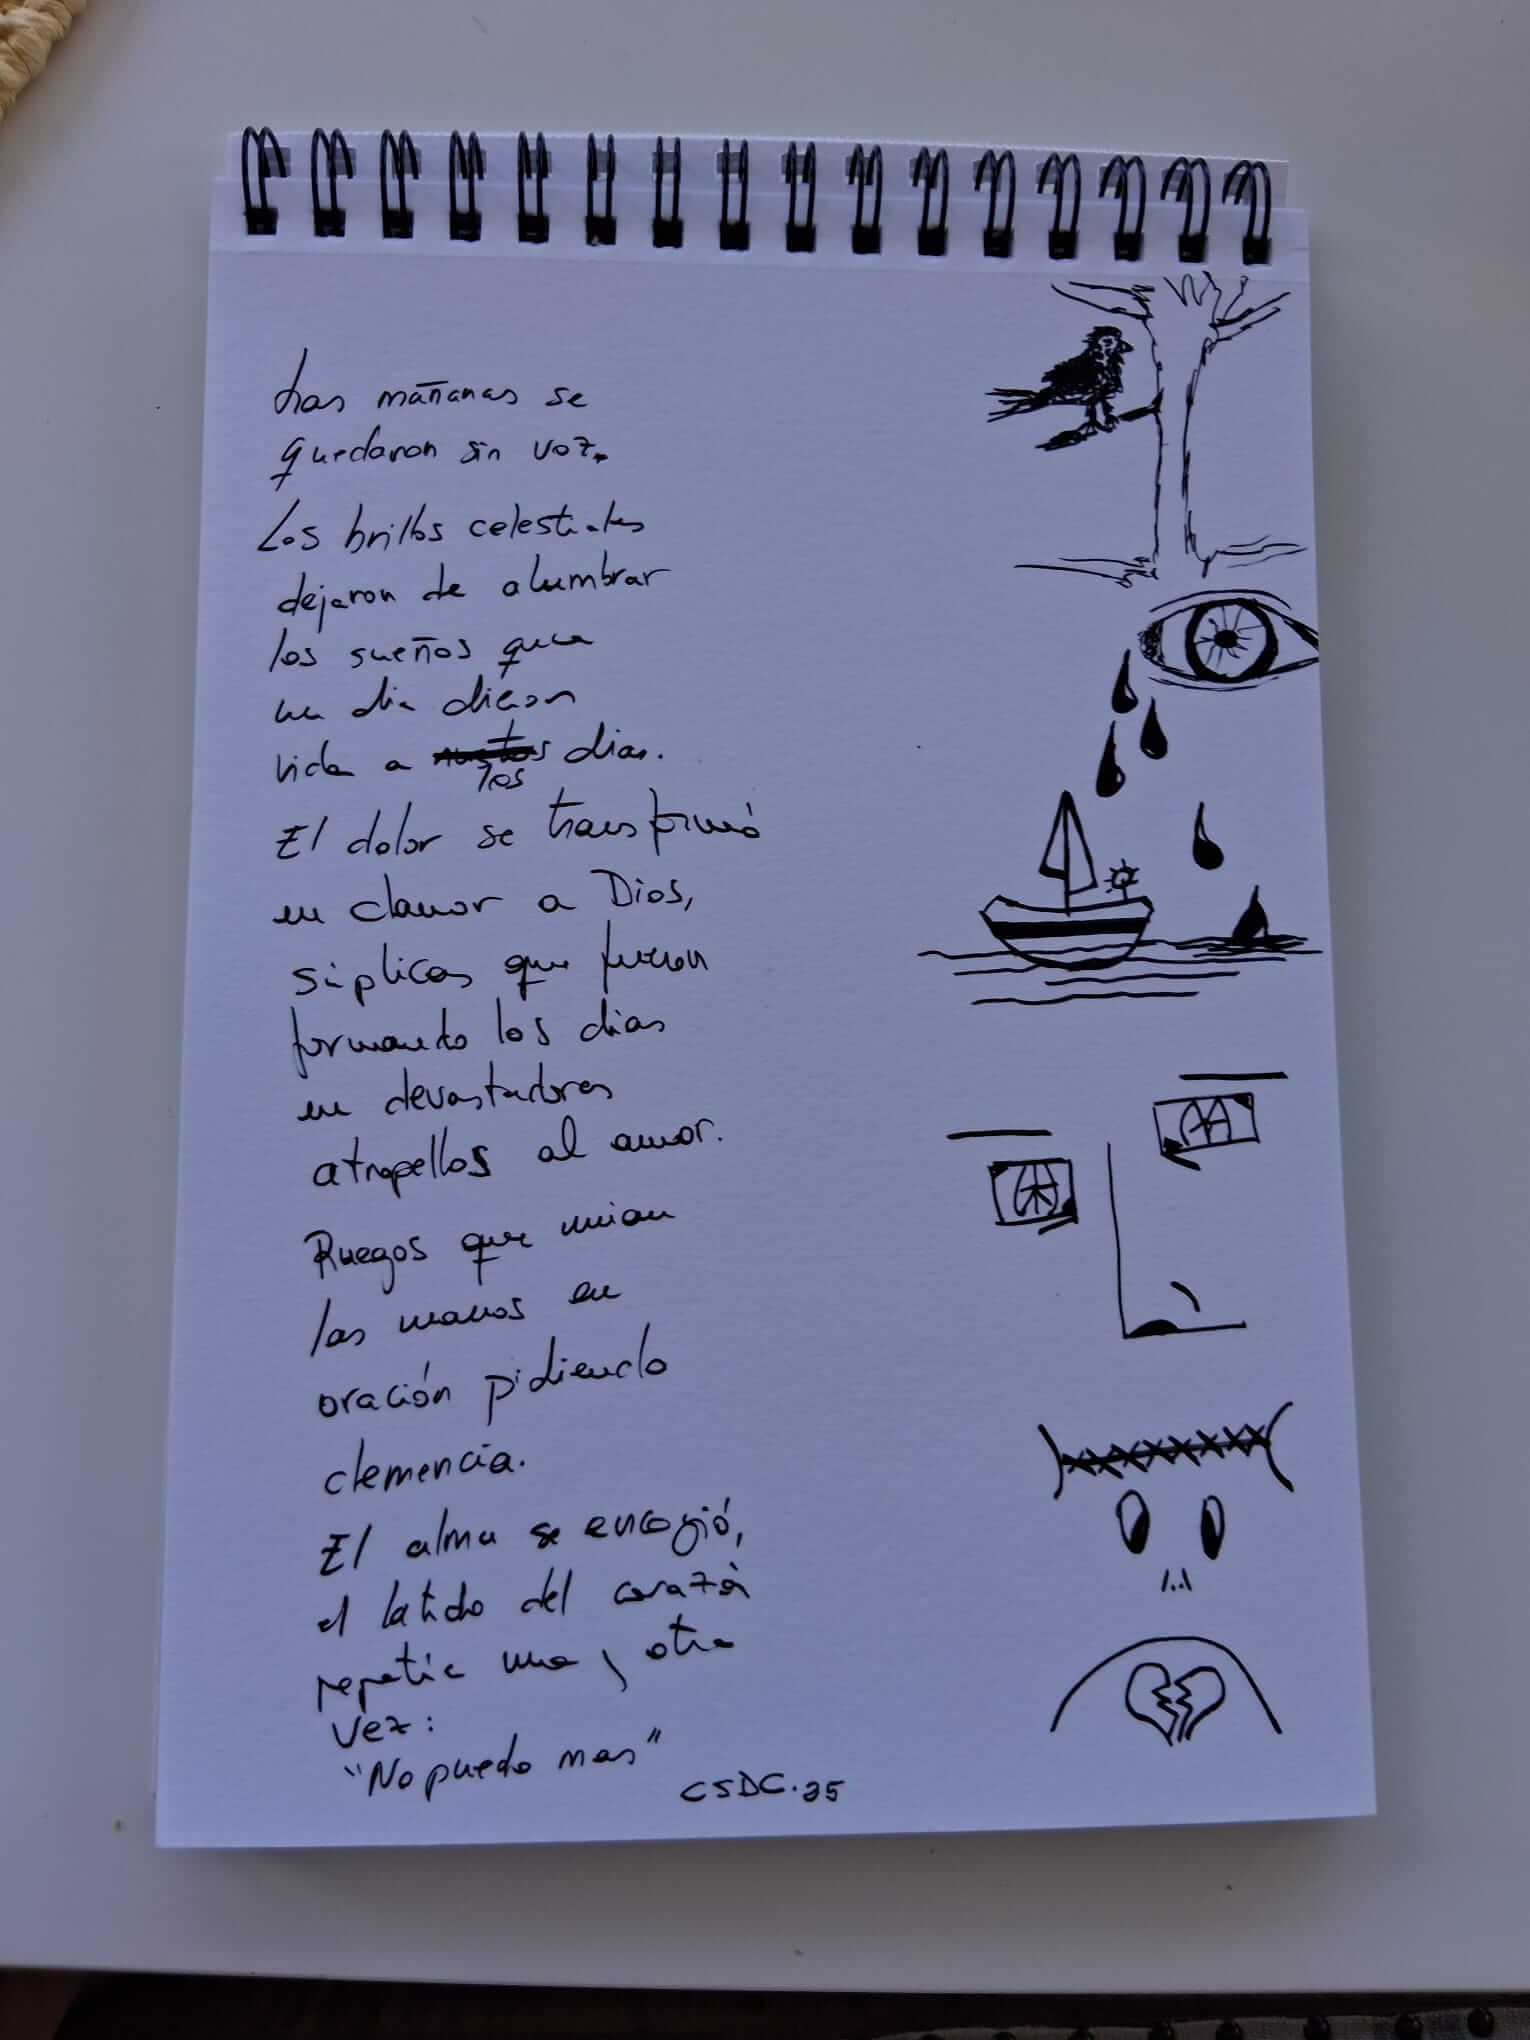 Las mañanas se
quedaron sin voz.
Los brillos celestiales
dejaron de alumbrar
los sueños que
un dia dieron
vida a los dias.
El dolor se transformó
en clamor a Dios,
súplicas que fueron
formando los dias
en devastadores
atropellos al amor.
Ruegos que unian
las manos en
oración pidiendo
clemencia.
El alma se encogió,
el latido del corazón
repetia una y otra
vez:
"No puedo mas"
CSDC.25